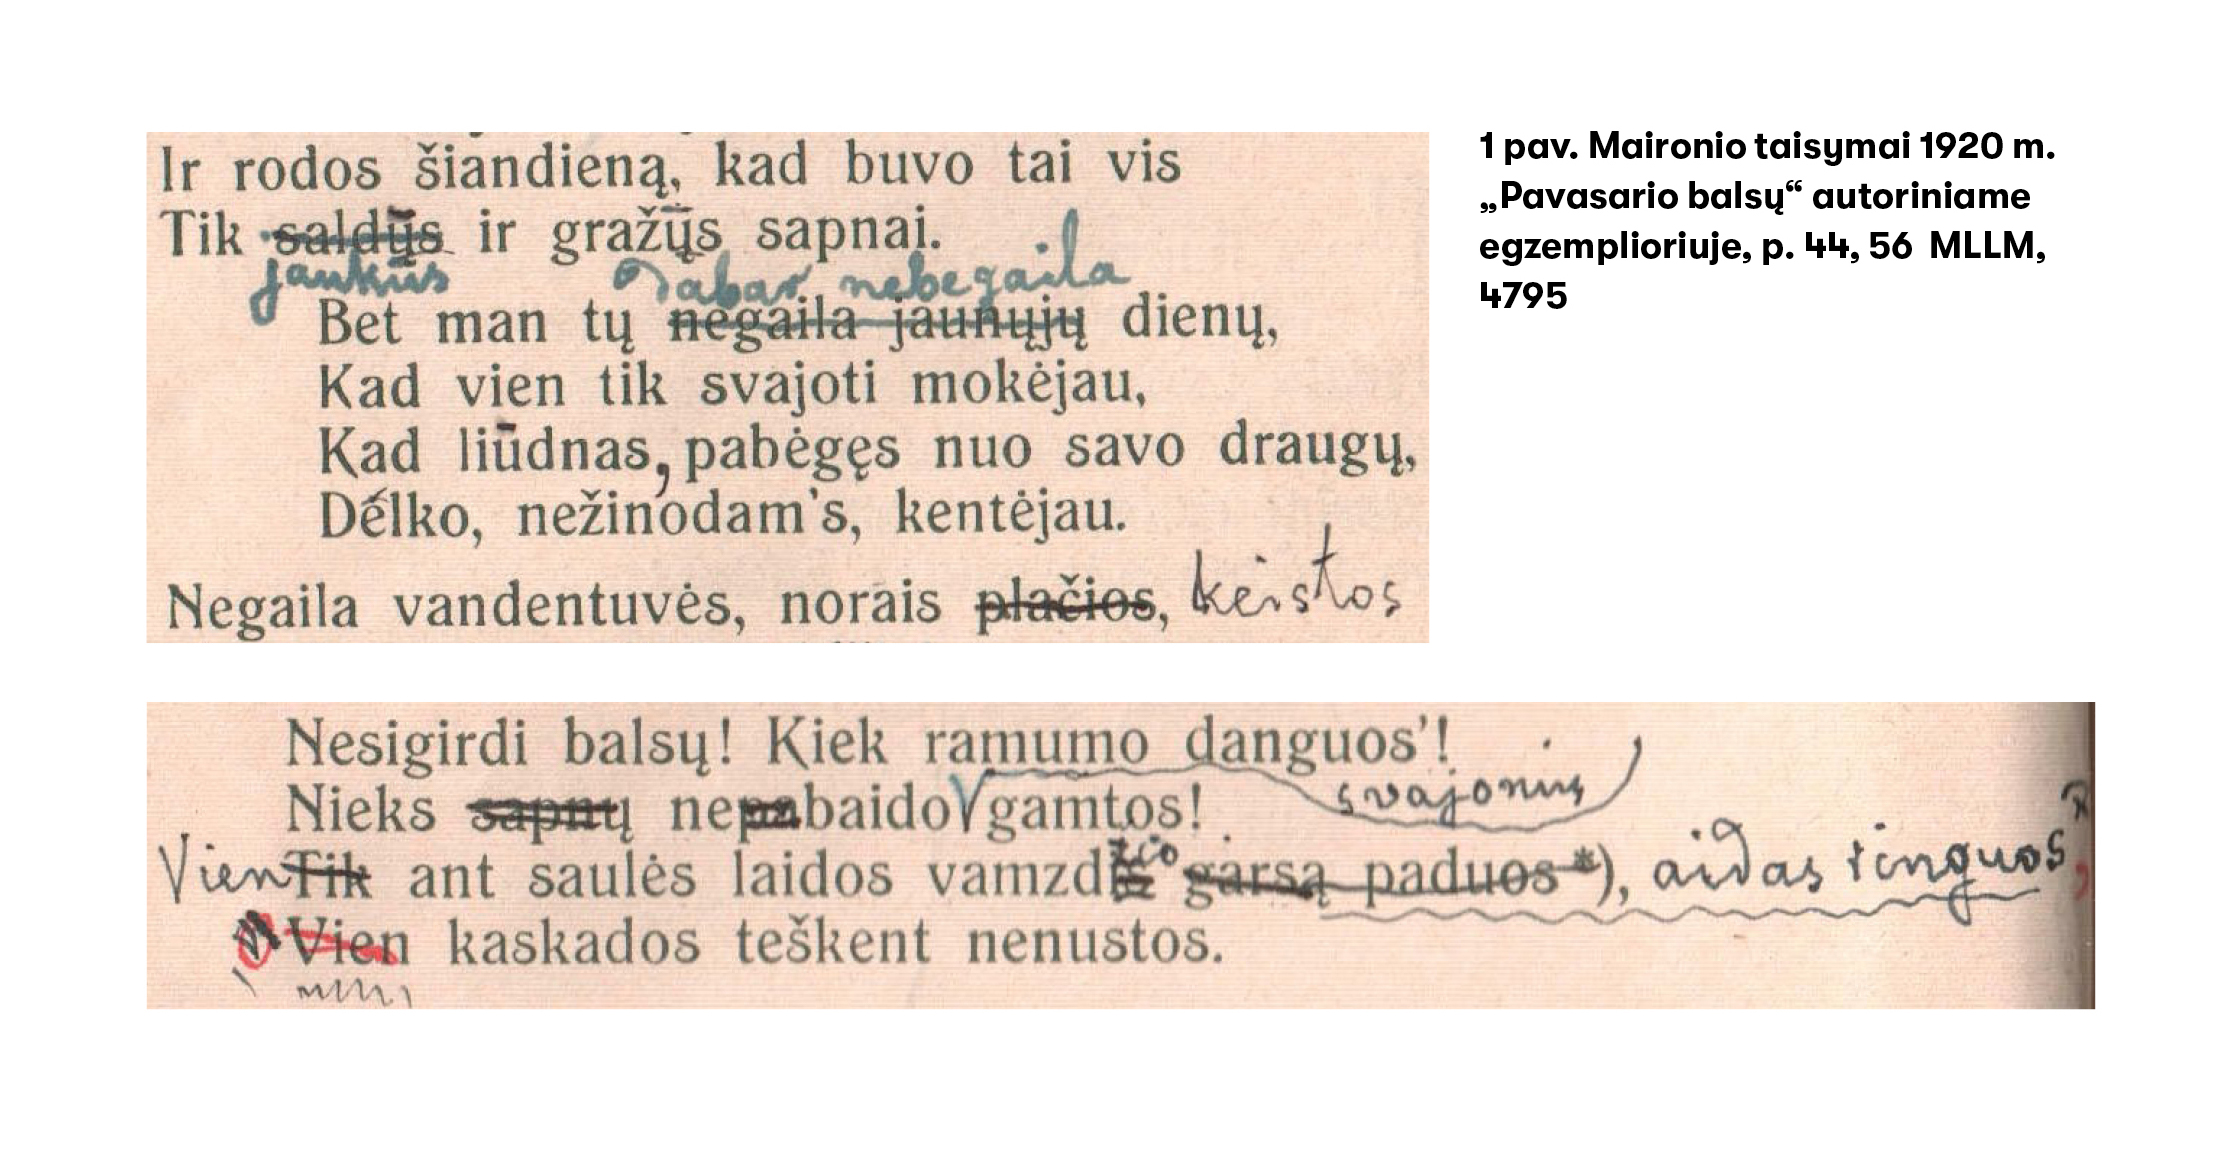 Ir rodos šiandieną, kad buvo tai vis
Tik saldųs ir gražųs sapnai.
jaukūs Dabar nebegaila
Bet man tų negaila jaunųjų dienų,
Kad vien tik svajoti mokėjau,
Kad liūdnas, pabėgęs nuo savo draugų,
Dėlko, nežinodam's, kentėjau.
Negaila vandentuvės, norais plačios, keistos
1 pav. Maironio taisymai 1920 m.
„Pavasario balsų“ autoriniame
egzemplioriuje, p. 44, 56 MLLM,
4795
Nesigirdi balsų! Kiek ramumo danguos'!
svajonių
Nieks sapnų nepabaido gamtos!
žio
Vien Tik ant saulės laidos vamzdis garsą paduos*), aidas tinguos
Vien kaskados teškent nenustos.